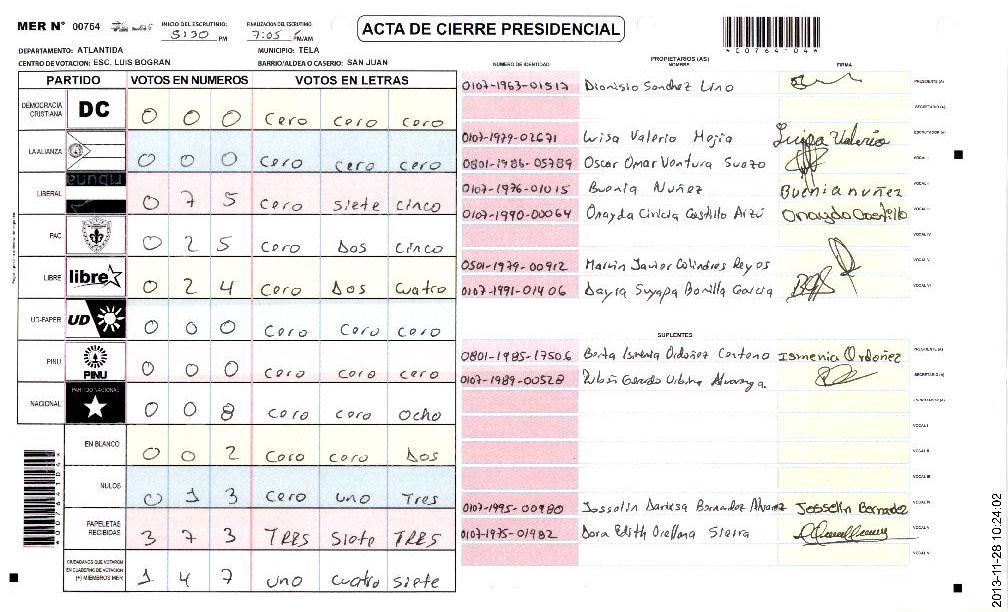 MER N° 00764
INICIO DEL ESCRUTINIO:
5:30 PM
FINALIZACION DEL ESCRUTINIO:
7:05 PM/AM
ACTA DE CIERRE PRESIDENCIAL
*0076410 4*
DEPARTAMENTO: ATLANTIDA
MUNICIPIO: TELA
CENTRO DE VOTACION: ESC. LUIS BOGRAN
BARRIO/ALDEA O CASERIO: SAN JUAN
PARTIDO VOTOS EN NUMEROS VOTOS EN LETRAS
DEMOCRACIA CRISTIANA DC 0 0 0 Cero Cero Cero
LA ALIANZA 0 0 0 Cero Cero Cero
LIBERAL 0 7 5 Cero Siete Cinco
PAC 0 2 5 Cero Dos Cinco
LIBRE libre 0 2 4 Cero Dos Cuatro
UD-FAPER UD 0 0 0 Cero Cero Cero
PINU PINU 0 0 0 Cero Cero Cero
NACIONAL PARTIDO NACIONAL 0 0 8 Cero Cero Ocho
EN BLANCO 0 0 2 Cero Cero Dos
NULOS 0 1 3 Cero uno Tres
PAPELETAS RECIBIDAS 3 7 3 TRES Siete TRES
CIUDADANOS QUE VOTARON EN CUADERNO DE VOTACION (+) MIEMBROS MER 1 4 7 uno Cuatro Siete
NUMERO DE IDENTIDAD
PROPIETARIOS (AS)
NOMBRE
FIRMA
0107-1963-01517 Dionisio Sanchez Lino PRESIDENTE (A)
SECRETARIO (A)
0107-1979-02671 Luisa Valerio Mejia Luisa Valerio ESCRUTADOR (A)
0801-1986-05789 Oscar Omar Ventura Suazo VOCAL I
0107-1976-01015 Buenia Nuñez Buenia nuñez VOCAL II
0107-1990-00064 Onayda Castillo Arzú Onayda Castillo VOCAL III
VOCAL IV
0501-1979-00912 Marvin Javier Colindres Reyes VOCAL V
0107-1991-01406 Dayra Suyapa Bonilla Garcia VOCAL VI
SUPLENTES
0801-1985-17506 Berta Ismenia Ordoñez Centeno Ismenia Ordoñez PRESIDENTE (A)
0107-1989-00528 Rubén Gerardo Urbina SECRETARIO (A)
ESCRUTADOR (A)
VOCAL I
VOCAL II
VOCAL III
0107-1995-00980 Josselin Darissa Bernadez Alvarez Josselin Bernadez VOCAL IV
0107-1975-01982 Dora Edith Orellana Sierra VOCAL V
VOCAL VI
2013-11-28 10:24:02